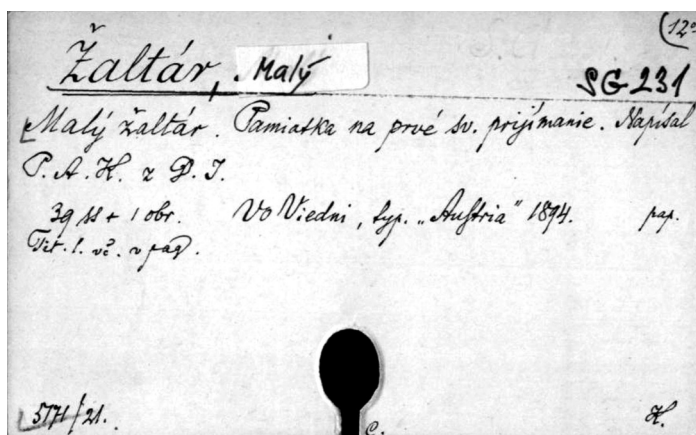 (12°
Žaltár, Malý
SG 231
Malý žaltár. Pamiatka na prvé sv. prijímanie. Napísal
P. A. H. z D. I.
39 ss + 1 obr. Vo Viedni, typ. „Austria" 1894. pap.
Tit. l. vč. v pag.
5171/21.
C.
H.